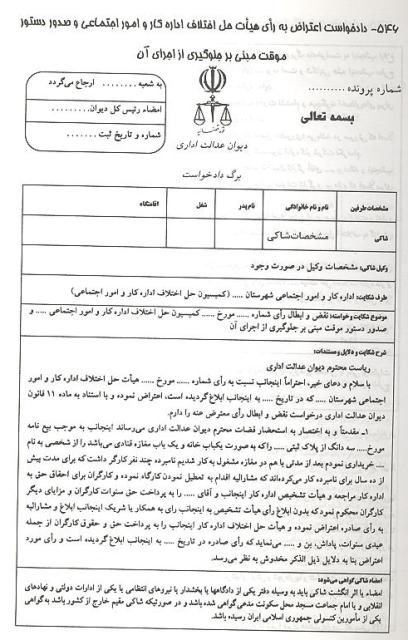 ۵۴۶- دادخواست اعتراض به رأی هیأت حل اختلاف اداره کار و امور اجتماعی و صدور دستور
موقت مبنی بر جلوگیری از اجرای آن
شماره پرونده ..........
بسمه تعالی
به شعبه ........ ارجاع می‌گردد
امضاء رئیس کل دیوان..........
شماره و تاریخ ثبت ..........
قوه قضائیه
دیوان عدالت اداری
برگ دادخواست
مشخصات طرفین نام و نام خانوادگی نام پدر شغل اقامتگاه
شاکی مشخصات شاکی
وکیل شاکی: مشخصات وکیل در صورت وجود
طرف شکایت: اداره کار و امور اجتماعی شهرستان ..... (کمیسیون حل اختلاف اداره کار و امور اجتماعی)
موضوع شکایت و خواسته: نقض و ابطال رأی شماره ..... مورخ ..... کمیسیون حل اختلاف اداره کار و امور اجتماعی ..... و
صدور دستور موقت مبنی بر جلوگیری از اجرای آن
شرح شکایت و دلایل و مستندات:
ریاست محترم دیوان عدالت اداری
با سلام و دعای خیر، احتراماً اینجانب نسبت به رأی شماره ..... مورخ ..... هیأت حل اختلاف اداره کار و امور
اجتماعی شهرستان ..... که در تاریخ ..... به اینجانب ابلاغ گردیده است، اعتراض نموده و با استناد به ماده ۱۱ قانون
دیوان عدالت اداری درخواست نقض و ابطال رأی معترض عنه را دارم.
۱- مقدمتاً و به اختصار به استحضار قضات محترم دیوان عدالت اداری می‌رساند اینجانب به موجب بیع نامه
مورخ..... سه دانگ از پلاک ثبتی ..... را که به صورت یکباب خانه و یک باب مغازه قنادی می‌باشد را از شخصی به نام
..... خریداری نمودم بعد از مدتی با هم در مغازه مشغول به کار شدیم نامبرده چند نفر کارگر داشت که برای مدت بیش
از ده سال برای نامبرده کار می‌کرده‌اند که مشارالیه اقدام به تعطیل نمودن کارگاه نموده و کارگران برای احقاق حق به
اداره کار مراجعه و هیأت تشخیص اداره کار اینجانب و آقای ..... را به پرداخت حق سنوات کارگران و مزایای دیگر
کارگران محکوم نمود که بدون ابلاغ رأی هیأت تشخیص به اینجانب رأی به همکار یا شریک اینجانب ابلاغ و مشارالیه
به رأی صادره اعتراض نموده و هیأت حل اختلاف اداره کار اینجانب را به پرداخت حق و حقوق کارگران از جمله
عیدی سنوات، پاداش، بن و ..... می‌نماید که رأی صادره در تاریخ ..... به اینجانب ابلاغ گردیده است و رأی مورد
اعتراض بنا به دلایل ذیل الذکر مخدوش به نظر می‌رسد.
امضاء شاکی گواهی می‌شود:
امضاء یا اثر انگشت شاکی باید به وسیله دفتر یکی از دادگاهها یا بخشدار یا نیروهای انتظامی یا یکی از ادارات دولتی و نهادهای
انقلابی و یا امام جماعت مسجد محل سکونت مدعی گواهی شده باشد و در صورتیکه شاکی مقیم خارج از کشور باشد به گواهی
یکی از مأمورین کنسولی جمهوری اسلامی ایران رسیده باشد.